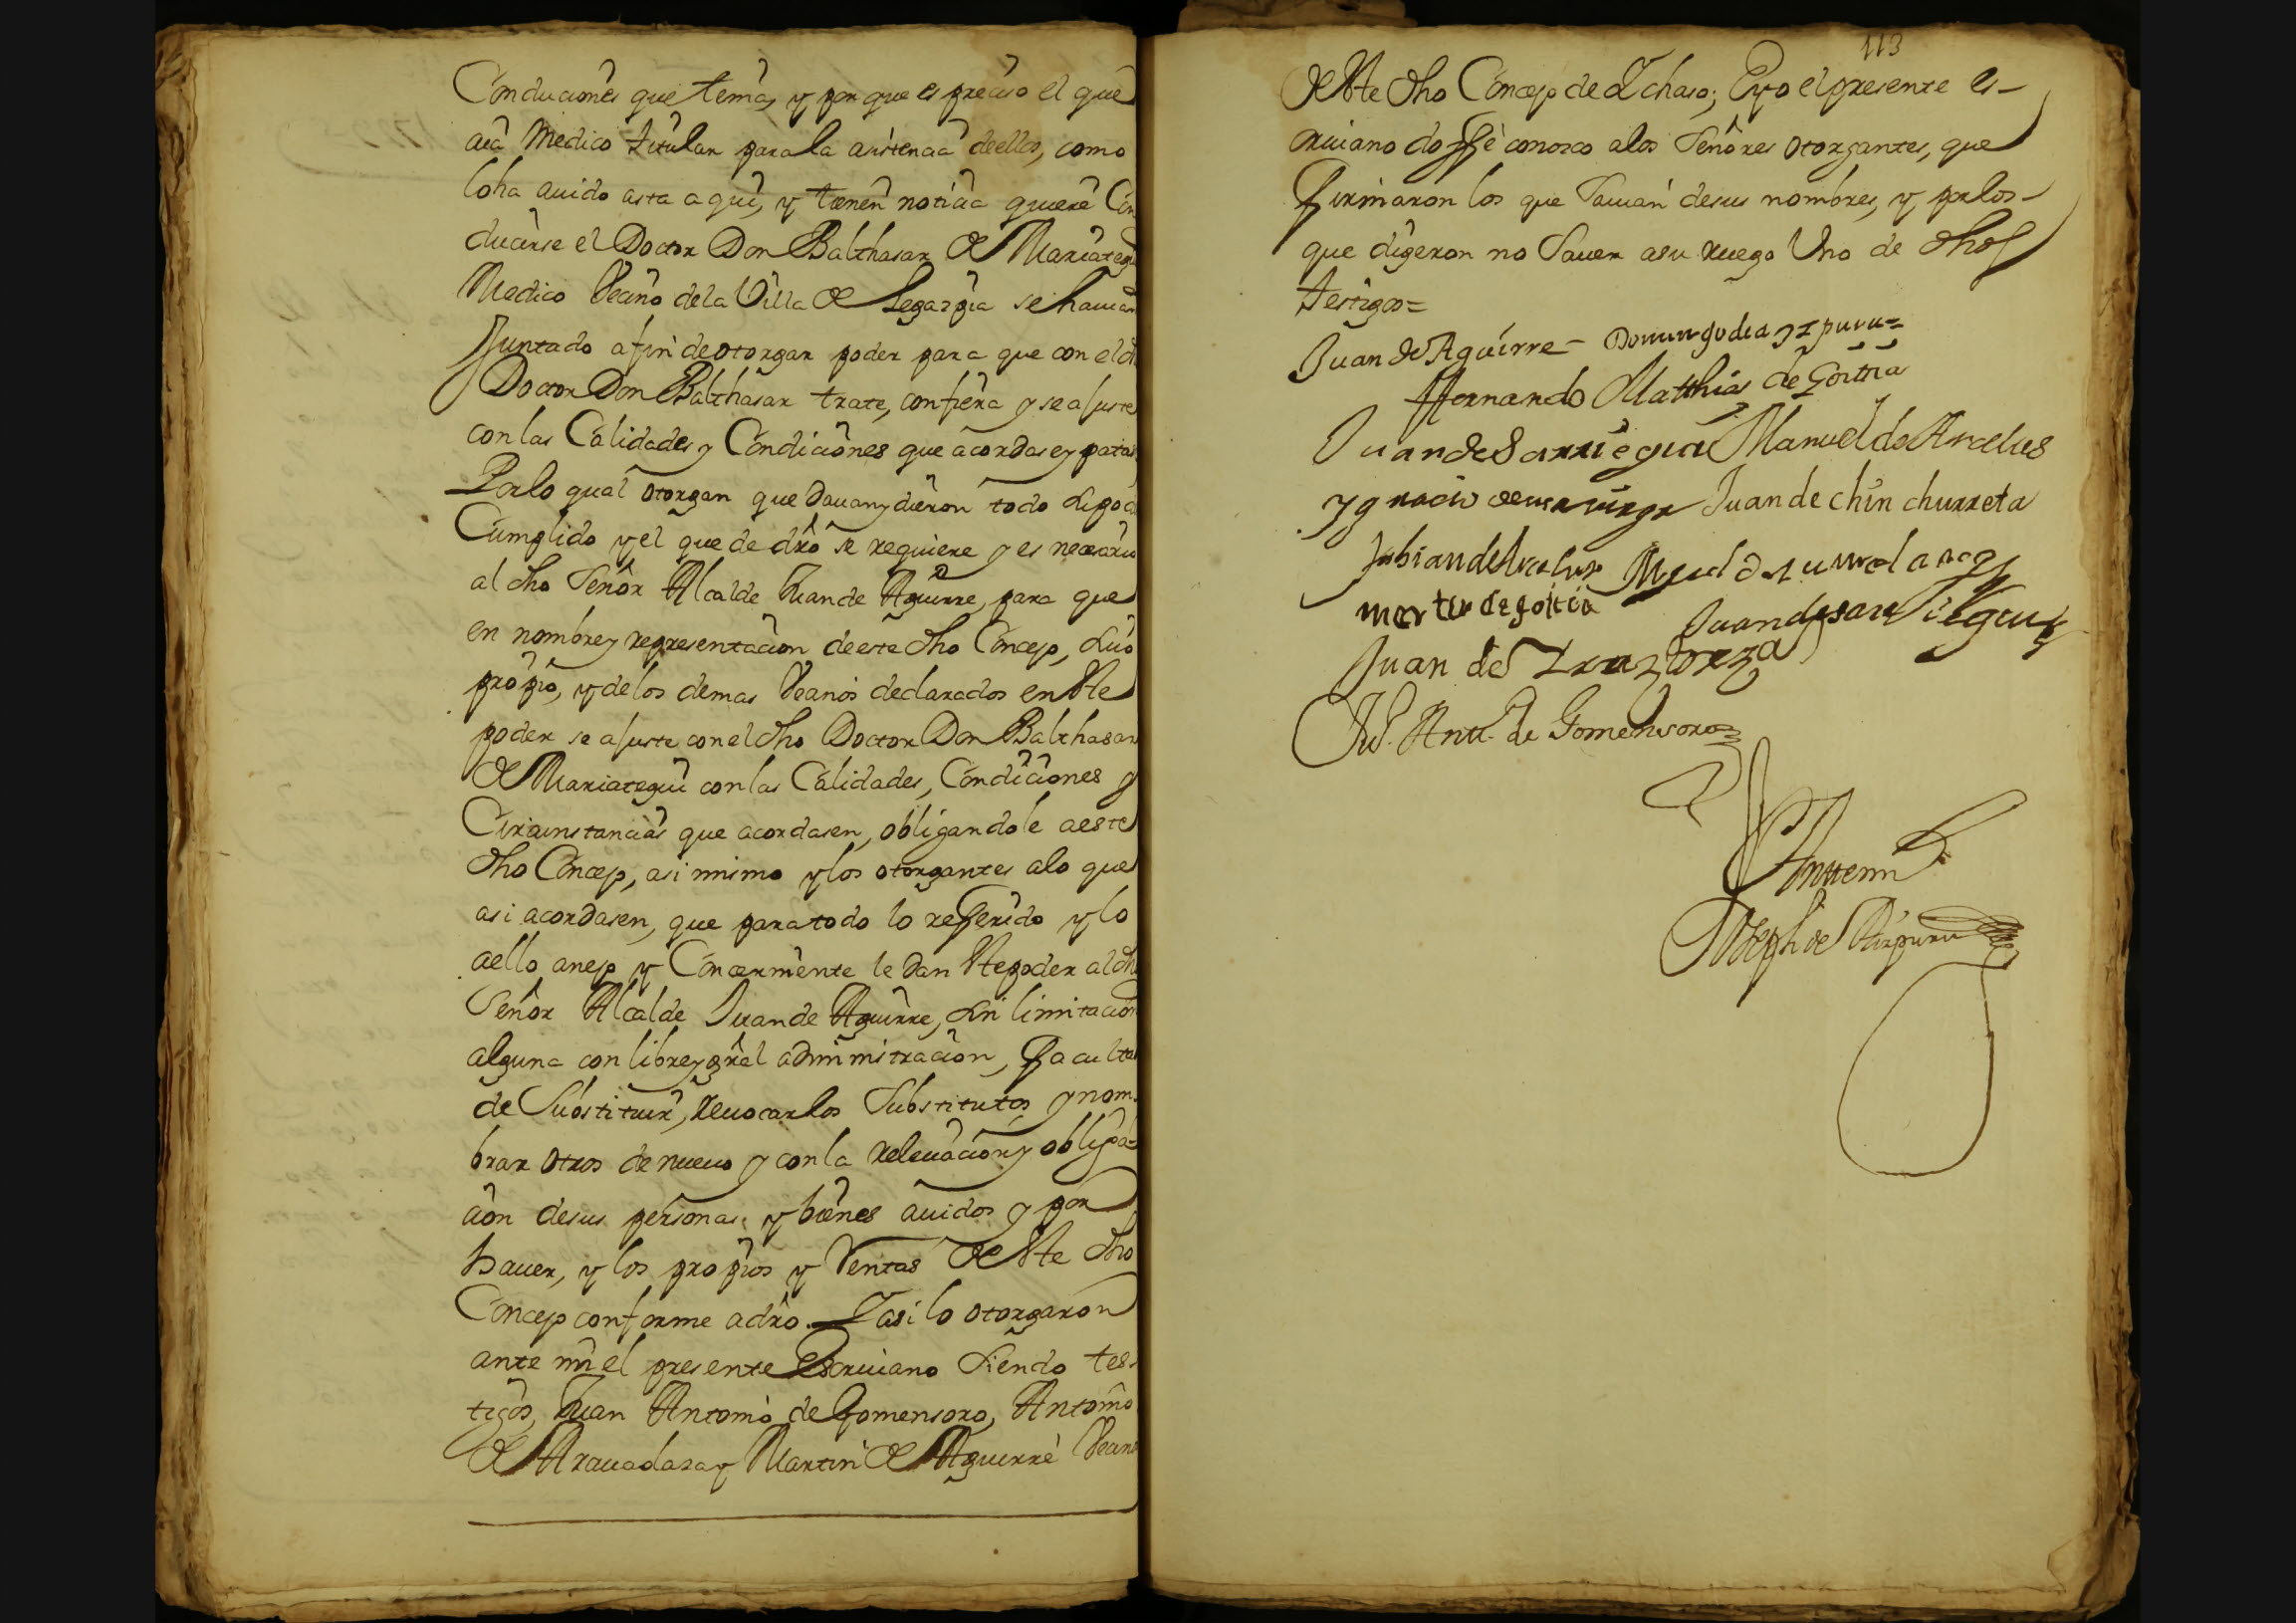 Conduciones que tenia, y por que es preciso el que
aia Medico titular para la asistencia de ellos, como
lo ha auido asta aqui, y tienen noticia quiere Con
ducirse el Doctor Don Balthasar de Mariategui
Medico Vecino de la Villa de Legazpia se hauian
Juntado a fin de otorgar poder para que con el dho
Doctor Don Balthasar trate, confiera y se ajuste
con las Calidades y Condiciones que acordase y
Por lo qual otorgan que dauan y dieron todo su poder
Cumplido y el que de dro se requiere y es necesario
al dho Señor Alcalde Juan de Aguirre, para que
en nombre y representacion de este dho Concejo, suio
propio, y de los demas Vecinos declarados en este
poder se ajuste con el dho Doctor Don Balthasar
de Mariategui con las Calidades, Condiciones y
Circunstancias que acordasen, obligandole a este
dho Concejo, asi mismo y los otorgantes alo que
asi acordasen, que para todo lo referido y lo
aello anejo y Concerniente le dan este poder al dho
Señor Alcalde Juan de Aguirre, sin limitacion
alguna con libre y gral administracion, facultad
de Substituir, reuocar los Substitutos y nom-
brar otros de nueuo y con la releuacion y obliga-
cion de sus personas, y bienes auidos y por
hauer, y los propios y Rentas de este dho
Concejo conforme a dro. Y asi lo otorgaron
ante mi el presente Escriuano siendo tes-
tigos, Juan Antonio de Gomensoro, Antonio
de Arauadaza y Martin de Aguirre Vecinos
113
de este dho Concejo de Ychaso; E yo el presente es-
criuano doy fee conosco alos Señores otorgantes, que
firmaron los que Sauian de sus nombres, y por los
que digeron no Sauer a su ruego Uno de dhos
testigos=
Juan de Aguirre - Domingo de azpuru=
Hernando Matthias de Goittia
Juan de Sarriegui Manuel de Arcelus
Ygnacio Juan de chinchurreta
Fabian de Arcelus
Martin de goitia Juan de Sarriegui
Juan de Yrazoreza
Ju. Antt. de Gomensoro
Antte mi
Joseph de Aizpuru